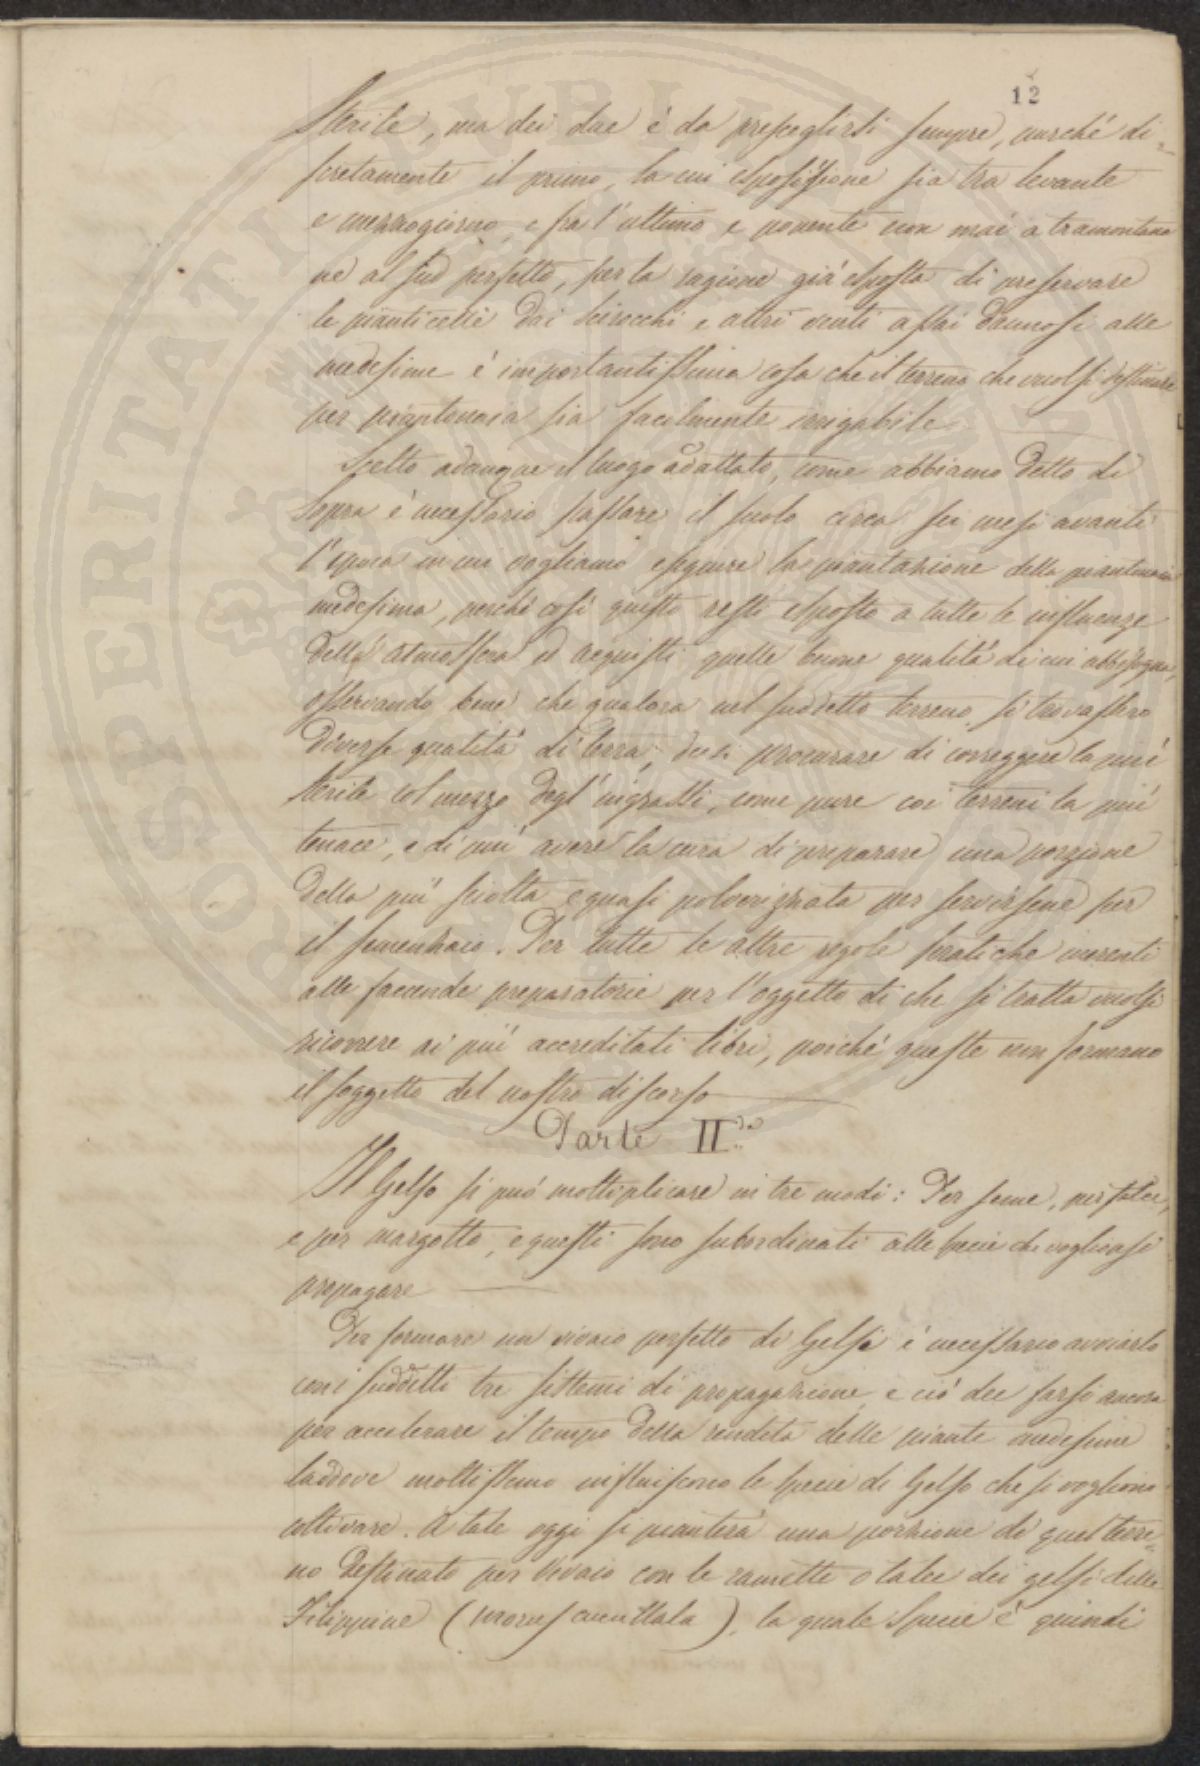 12
Sterile, ma dei due è da prescegliersi sempre, purché di-
scretamente il primo, la cui esposizione sia tra levante
e mezzogiorno, e fra l'ultimo e ponente non mai a tramontana
ne al sud perfetto, per la ragione già esposta di preservare
le pianticelle dai scirocchi e altri venti assai dannosi alle
medesime è importantissima cosa che il terreno che vuolsi destinare
per piantonaia sia facilmente irrigabile
Scelto adunque il luogo adattato, come abbiamo detto di
Sopra è necessario scassare il suolo circa sei mesi avanti
l'epoca in cui vogliamo eseguire la piantazione della piantonaia
medesima, perché così questo resti esposto a tutte le influenze
dell'atmosfera ed acquisti quelle buone qualità di cui abbisogna,
osservando bene che qualora nel suddetto terreno si trovassero
diverse qualità di terra, devesi procurare di correggere la più
sterile col mezzo degl'ingrassi, come pure coi terreni la più
tenace, e di più avere la cura di preparare una porzione
della più sciolta e quasi polverizzata per servirsene per
il semenzaio. Per tutte le altre regole pratiche inerenti
alle facende preparatorie per l'oggetto di che si tratta vuolsi
ricorrere ai più accreditati libri, poiché queste non formano
il soggetto del nostro discorso
Parte IIda
Il Gelso si può moltiplicare in tre modi: Per seme, per talee,
e per margotto, e questi sono subordinati alle specie che voglionsi
propagare
Per formare un vivaio perfetto di Gelsi è necessario avviarlo
con i suddetti tre sistemi di propagazione, e ciò dee farsi ancora
per accelerare il tempo della rendita delle piante medesime
laddove moltissimo influiscono le specie di Gelso che si vogliono
coltivare. A tale oggi si pianterà una porzione di quel terre-
no destinato per vivaio con le ramette o talee dei gelsi delle
Filippine (morus cucullata), la quale specie è quindi